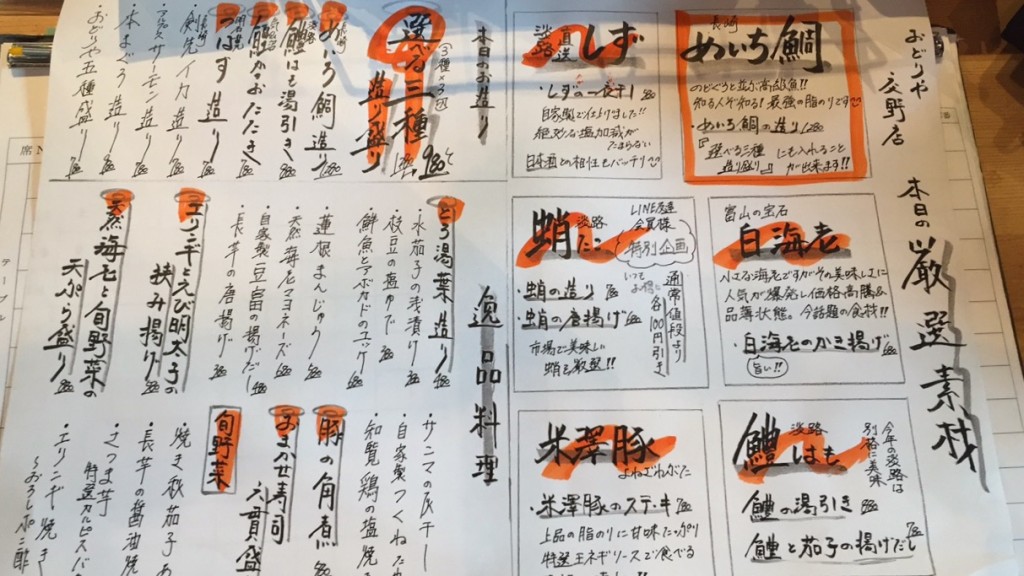 おどりや 交野店
本日の厳選素材
長崎
めいち鯛
のどぐろと並ぶ高級魚!!
知る人ぞ知る!最強の脂のりです♡
・めいち鯛の造り
『選べる三種
造り盛り』
にも入れること
が出来ます!!
淡路
直送
しず
・しずの一夜干し
自家製で仕上げました!!
絶妙な塩加減が
たまらない
日本酒との相性もバッチリ♡
富山の宝石
白海老
小さな海老ですがその美味しさに
人気が爆発し価格高騰&
品薄状態。今話題の食材!!
・白海老のかき揚げ
旨い!!
淡路
蛸 たこ
LINE友達
会員様
特別企画
いつでもお得に
通常値段より
各100円引き
・蛸の造り
・蛸の唐揚げ
市場で美味しい
蛸を厳選!!
淡路
鱧 はも
今年の淡路は
別格に美味
鱧の湯引き
鱧と茄子の揚げだし
米澤豚
よねざわぶた
・米澤豚のステーキ
上品の脂のりに甘味たっぷり
特選玉ネギソースで食べる
本日のお造り
選べる三種
造り盛り
めいち鯛造り
鱧はも湯引き
つばす造り
・炙り焼イカ造り
・アトランサーモン造り
・本まぐろ造り
・おどりや五種盛り
逸品料理
とろ湯葉造り
・水茄子の浅漬け
・枝豆の塩ゆで
・鮮魚とアボカドのユッケ
・蓮根まんじゅう
・天然海老マヨネーズ
・自家製豆富の揚げだし
・長芋の唐揚げ
エリンギとえび明太子の
挟み揚げ
天然海老と旬野菜の
天ぷら盛り
・サンマの灰干し
・自家製つくねたた
・知覧鶏の塩焼
豚の角煮
おまかせ寿司
六貫盛
旬野菜
・焼き秋茄子
・長芋の醤油焼
・さつま芋
特選カルピスバ
・エリンギ焼き
～おろしポン酢